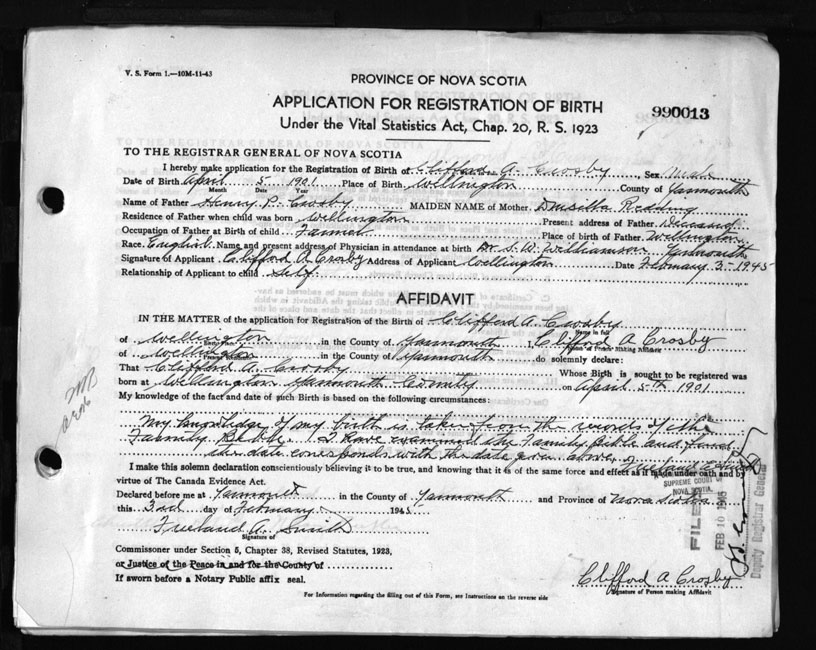 V. S. Form 1.—10M-11-43
PROVINCE OF NOVA SCOTIA
APPLICATION FOR REGISTRATION OF BIRTH
990013
Under the Vital Statistics Act, Chap. 20, R. S. 1923
TO THE REGISTRAR GENERAL OF NOVA SCOTIA
I hereby make application for the Registration of Birth of Clifford A. Crosby, Sex Male
Date of Birth April 5 1901 Place of Birth Wellington County of Yarmouth
Month Date Year
Name of Father Henry P. Crosby MAIDEN NAME of Mother Drusilla Redding
Residence of Father when child was born Wellington Present address of Father Deceased
Occupation of Father at Birth of child Farmer Place of birth of Father Wellington
Race English Name and present address of Physician in attendance at birth Dr. S. W. Williamson Yarmouth
Signature of Applicant Clifford A Crosby Address of Applicant Wellington Date February 3-1945
Relationship of Applicant to child Self
AFFIDAVIT
IN THE MATTER of the application for Registration of the Birth of Clifford A. Crosby
Name in full
of Wellington in the County of Yarmouth I, Clifford A Crosby
Name of Person Making Affidavit
of Wellington in the County of Yarmouth do solemnly declare:
That Clifford A. Crosby Whose Birth is sought to be registered was
born at Wellington Yarmouth County on April 5th 1901
My knowledge of the fact and date of such Birth is based on the following circumstances:
My knowledge of my birth is taken from the records of the
Family Bible. I have examined the Family Bible and find
the date corresponds with the date given above, Freeland A Smith
I make this solemn declaration conscientiously believing it to be true, and knowing that it is of the same force and effect as if made under oath and by
virtue of The Canada Evidence Act.
SUPREME COURT
NOVA SCOTIA
Declared before me at Yarmouth in the County of Yarmouth and Province of Nova Scotia
this 3rd day of February 1945
Freeland A. Smith
Signature of
Commissioner under Section 5, Chapter 38, Revised Statutes, 1923,
or Justice of the Peace in and for the County of
If sworn before a Notary Public affix seal.
Clifford A Crosby
Signature of Person making Affidavit
For Information regarding the filling out of this Form, see Instructions on the reverse side
FILED
FEB 10 1945
Deputy Registrar General